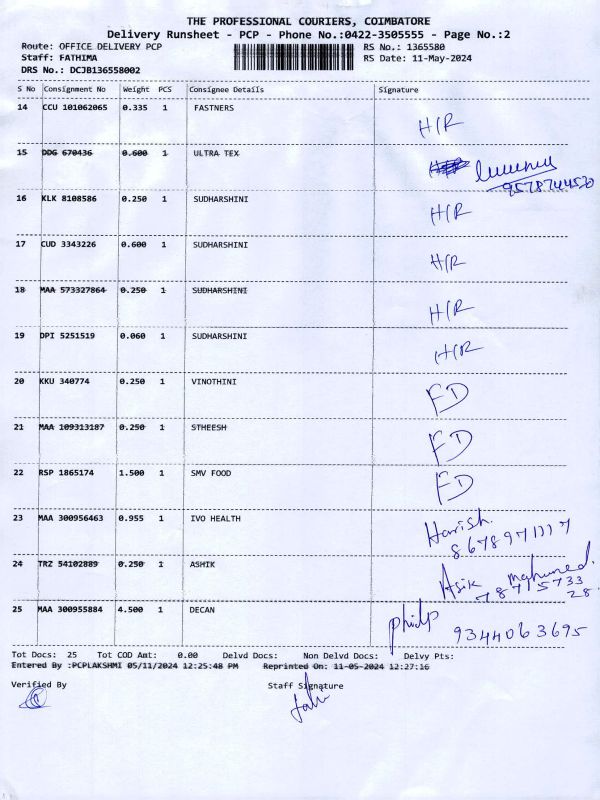 THE PROFESSIONAL COURIERS, COIMBATORE
Delivery Runsheet - PCP - Phone No.:0422-3505555 - Page No.:2
Route: OFFICE DELIVERY PCP RS No.: 1365580
Staff: FATHIMA RS Date: 11-May-2024
DRS No.: DCJB136558002
S No Consignment No Weight PCS Consignee Details Signature
14 CCU 101062065 0.335 1 FASTNERS H/R
15 DDG 670436 0.600 1 ULTRA TEX
9578744520
16 KLK 8108586 0.250 1 SUDHARSHINI H/R
17 CUD 3343226 0.600 1 SUDHARSHINI H/R
18 MAA 573327864 0.250 1 SUDHARSHINI H/R
19 DPI 5251519 0.060 1 SUDHARSHINI H/R
20 KKU 340774 0.250 1 VINOTHINI FD
21 MAA 109313187 0.250 1 STHEESH FD
22 RSP 1865174 1.500 1 SMV FOOD FD
23 MAA 300956463 0.955 1 IVO HEALTH Harish.
8678971117
24 TRZ 54102889 0.250 1 ASHIK Asik mahumed.
78715733
28.
25 MAA 300955884 4.500 1 DECAN philp
9344063695
Tot Docs: 25 Tot COD Amt: 0.00 Delvd Docs: Non Delvd Docs: Delvy Pts:
Entered By :PCPLAKSHMI 05/11/2024 12:25:48 PM Reprinted On: 11-05-2024 12:27:16
Verified By Staff Signature